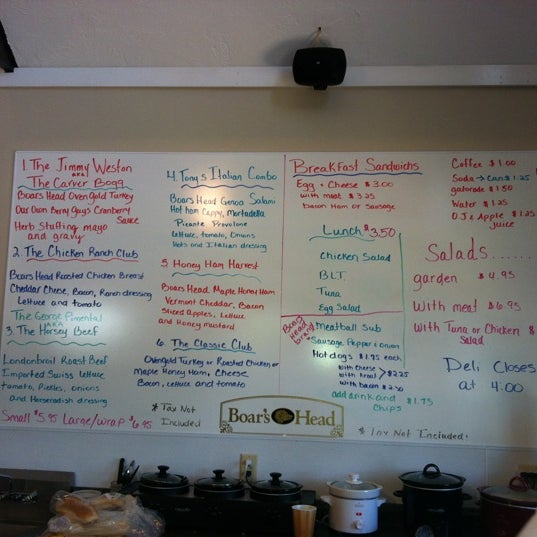 1. The Jimmy Weston
aka
The Carver Bogg
Boars Head Oven Gold Turkey
Our Own Berry Guys Cranberry
Sauce
Herb Stuffing mayo
and gravy
2. The Chicken Ranch Club
Boars Head Roasted Chicken Breast
Cheddar Cheese, Bacon, Ranch dressing
Lettuce and tomato
The George Pimental
AKA
3. The Horsey Beef
Londonbroil Roast Beef
Imported Swiss Lettuce
tomato, Pickles, Onions
and Horseradish dressing
Small $5.95 Large/Wrap $6.95
4. Tony's Italian Combo
Boars Head Genoa Salami
Hot Ham Cappy, Mortadella
Picante Provolone
Lettuce, tomato, Onions
Hots and Italian dressing
5. Honey Ham Harvest
Boars Head Maple Honey Ham
Vermont Cheddar, Bacon
Sliced Apples, Lettuce
and Honey mustard
6. The Classic Club
Ovengold Turkey or Roasted Chicken or
Maple Honey Ham, Cheese
Bacon, Lettuce and tomato
* Tax Not
Included
Boar's Head
Breakfast Sandwichs
Egg + Cheese $3.00
with meat $3.25
Bacon Ham or Sausage
Lunch $3.50
Chicken Salad
B.L.T.
Tuna
Egg Salad
Boars Head Brand
Meatball Sub
Sausage Pepper + onion
Hot dogs $1.75 each
with Cheese
with Kraut > $2.25
with bacon $2.50
add drink and
Chips $1.75
Coffee $1.00
Soda → Cans $1.25
gatorade $1.50
Water $1.25
O.J + Apple $1.25
Juice
Salads......
garden $4.95
With meat $6.95
With Tuna or Chicken $
Salad
Deli Closes
at 4:00
* Tax Not Included!